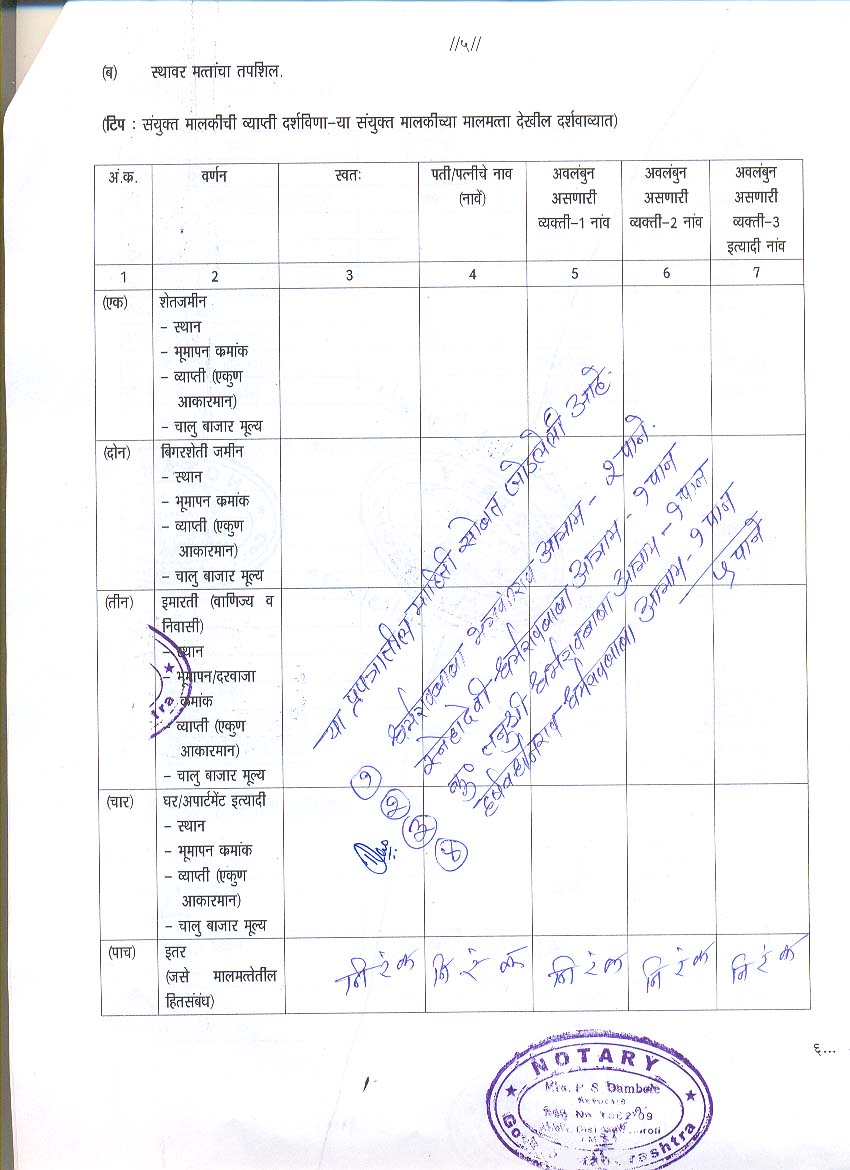 //५//
(ब) स्थावर मत्तांचा तपशिल.
(टिप : संयुक्त मालकीची व्याप्ती दर्शविणा-या संयुक्त मालकीच्या मालमत्ता देखील दर्शवाव्यात)
अं.क. वर्णन स्वतः पती/पत्नीचे नाव (नावें) अवलंबुन असणारी व्यक्ती-1 नांव अवलंबुन असणारी व्यक्ती-2 नांव अवलंबुन असणारी व्यक्ती-3 इत्यादी नांव
1 2 3 4 5 6 7
(एक) शेतजमीन
- स्थान
- भूमापन कमांक
- व्याप्ती (एकुण
आकारमान)
- चालु बाजार मूल्य
(दोन) बिगरशेती जमीन
- स्थान
- भूमापन कमांक
- व्याप्ती (एकुण
आकारमान)
- चालु बाजार मूल्य
(तीन) इमारती (वाणिज्य व
निवासी)
- स्थान
- भूमापन/दरवाजा
कमांक
- व्याप्ती (एकुण
आकारमान)
- चालु बाजार मूल्य
(चार) घर/अपार्टमेंट इत्यादी
- स्थान
- भूमापन कमांक
- व्याप्ती (एकुण
आकारमान)
- चालु बाजार मूल्य
या प्रपत्रातील माहिती सोबत जोडलेली आहे.
१ धर्मरावबाबा भगवंतराव आत्राम - २ पाने.
२ स्नेहादेवी धर्मरावबाबा आत्राम - १ पान
३ कु. तनुश्री धर्मरावबाबा आत्राम - १ पान
४ हर्षवर्धनराव धर्मरावबाबा आत्राम - १ पान
५ पाने
(पाच) इतर निरंक निरंक निरंक निरंक निरंक
(जसे मालमत्तेतील
हितसंबंध)
६...
NOTARY
P S Dambole
Reg No